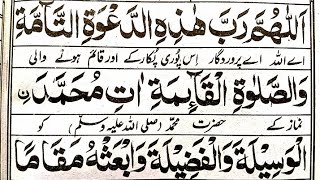 اَللّٰهُمَّ رَبَّ هٰذِهِ الدَّعْوَةِ التَّآمَّةِ
اے اللہ اے پروردگار اِس پُوری پکار کے اور قائم ہونے والی
وَالصَّلٰوةِ الْقَآئِمَةِ اٰتِ مُحَمَّدَنِ
نماز کے حضرت محمّد (صلی اللہ علیہ وسلّم) کو
الْوَسِيْلَةَ وَالْفَضِيْلَةَ وَابْعَثْهُ مَقَامًا